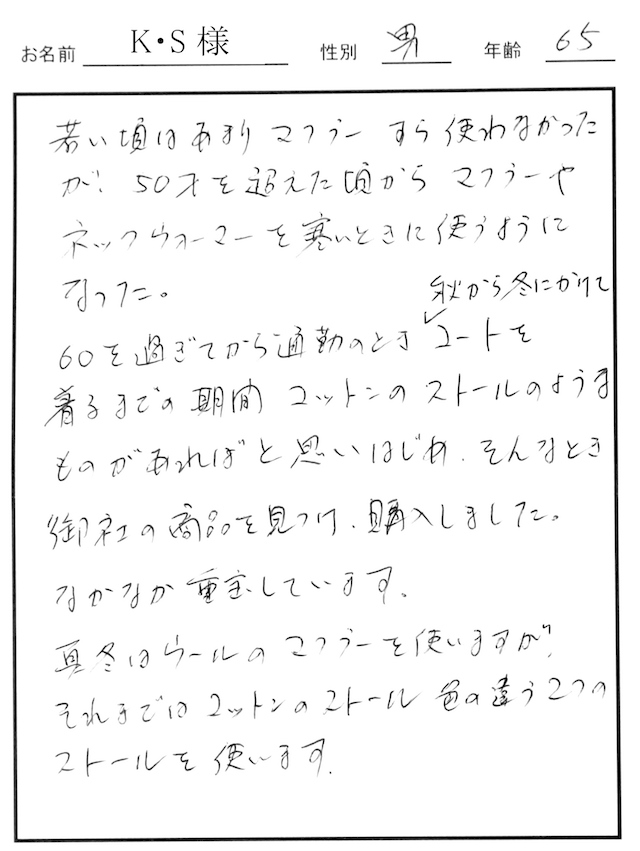 お名前 K・S 様 性別 男 年齢 65
若い頃はあまりマフラーすら使わなかった
が、50才を超えた頃からマフラーや
ネックウォーマーを寒いときに使うように
なった。
秋から冬にかけて
60を過ぎてから通勤のとき コートを
着るまでの期間 コットンのストールのような
ものがあればと思いはじめ、そんなとき
御社の商品を見つけ、購入しました。
なかなか重宝しています。
真冬はウールのマフラーを使いますが、
それまではコットンのストール 色の違う2つの
ストールを使います。